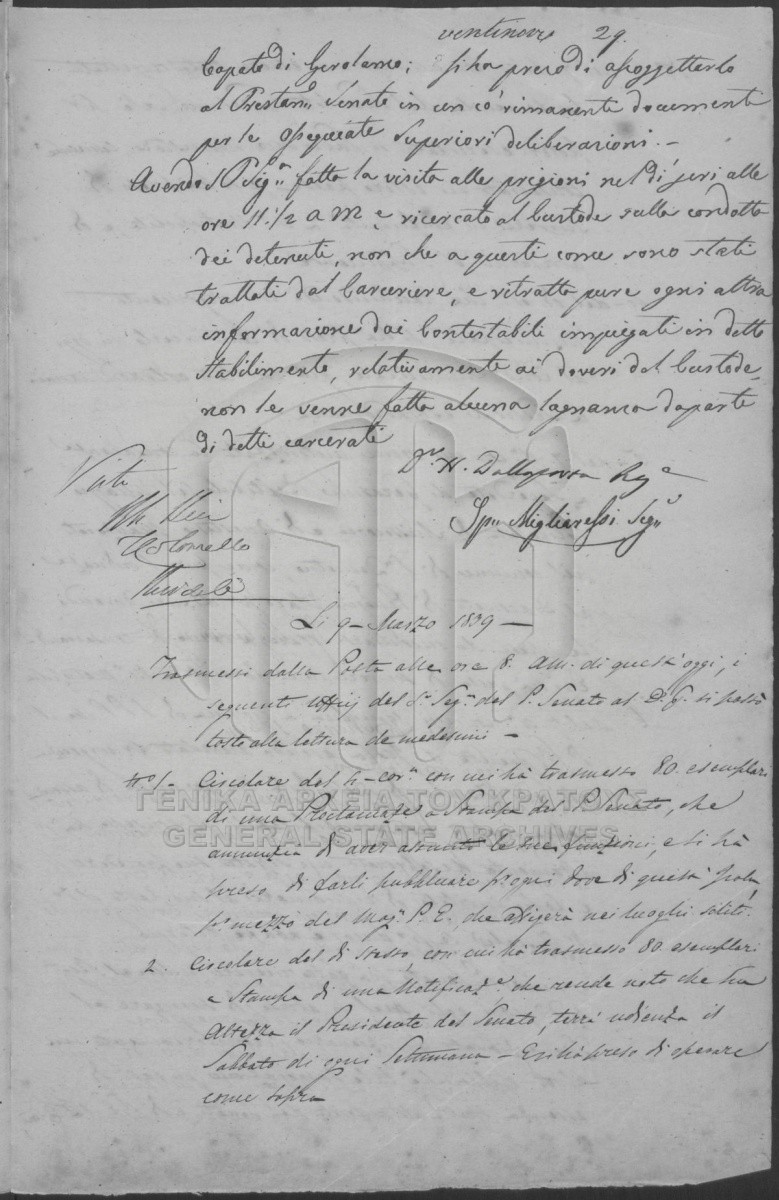 ventinove 29.
Capato di Gerolamo; si ha preso di assoggettarlo
al Prestan.mo Senato in un có rimanenti documenti
per le ossequiate Superiori deliberazioni. —
Avendo S. P. Sig.a fatta la visita alle prigioni nel dí jeri alle
ore 11.1/2 A M e ricercato al Custode sulla condotta
dei detenuti, non che a questi come sono stati
trattati dal Carceriere, e ritratta pure ogni altra
informazione dai Contestabili impiegati in detto
Stabilimento, relativamente ai doveri del Custode,
non le venne fatta alcuna lagnanza da parte
di detti carcerati
Dr. H. Dallaporta Reg.e
Visti
Sp.n Migliaressi Seg.o
Li 9 Marzo 1839 —
Trasmessi dalla Posta alle ore 8. AM. di quest'oggi, i
seguenti Uffizj del S.r Seg.o del P. Senato al D. G. si passò
tosto alla lettura de medesimi —
No. 1. Circolare del 4 cor.te con cui hà trasmesso 80. esemplari
di una Proclamaz.e a Stampa del P. Senato, che
annunzia di aver assunto le sue funzioni, e si hà
preso di farli pubblicare p. ogni dove di quest' Isola,
p. mezzo del Mag.o P. E. che affiggerà nei luoghi soliti.
2. Circolare del dì stesso, con cui hà trasmesso 80 esemplari
a Stampa di una Notificaz.e che rende noto che Sua
Altezza il Presidente del Senato, terrà udienza il
Sabbato di ogni Settimana — E si hà preso di operare
come sopra
ΓΕΝΙΚΑ ΑΡΧΕΙΑ ΤΟΥ ΚΡΑΤΟΥΣ
GENERAL STATE ARCHIVES